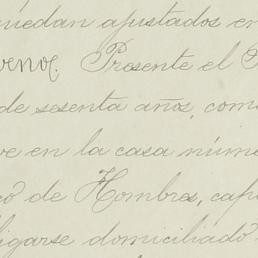 quedan ajustados en
Presente el
de sesenta años, com
ve en la casa núme
có de Hombres, cap
ligarse domiciliado